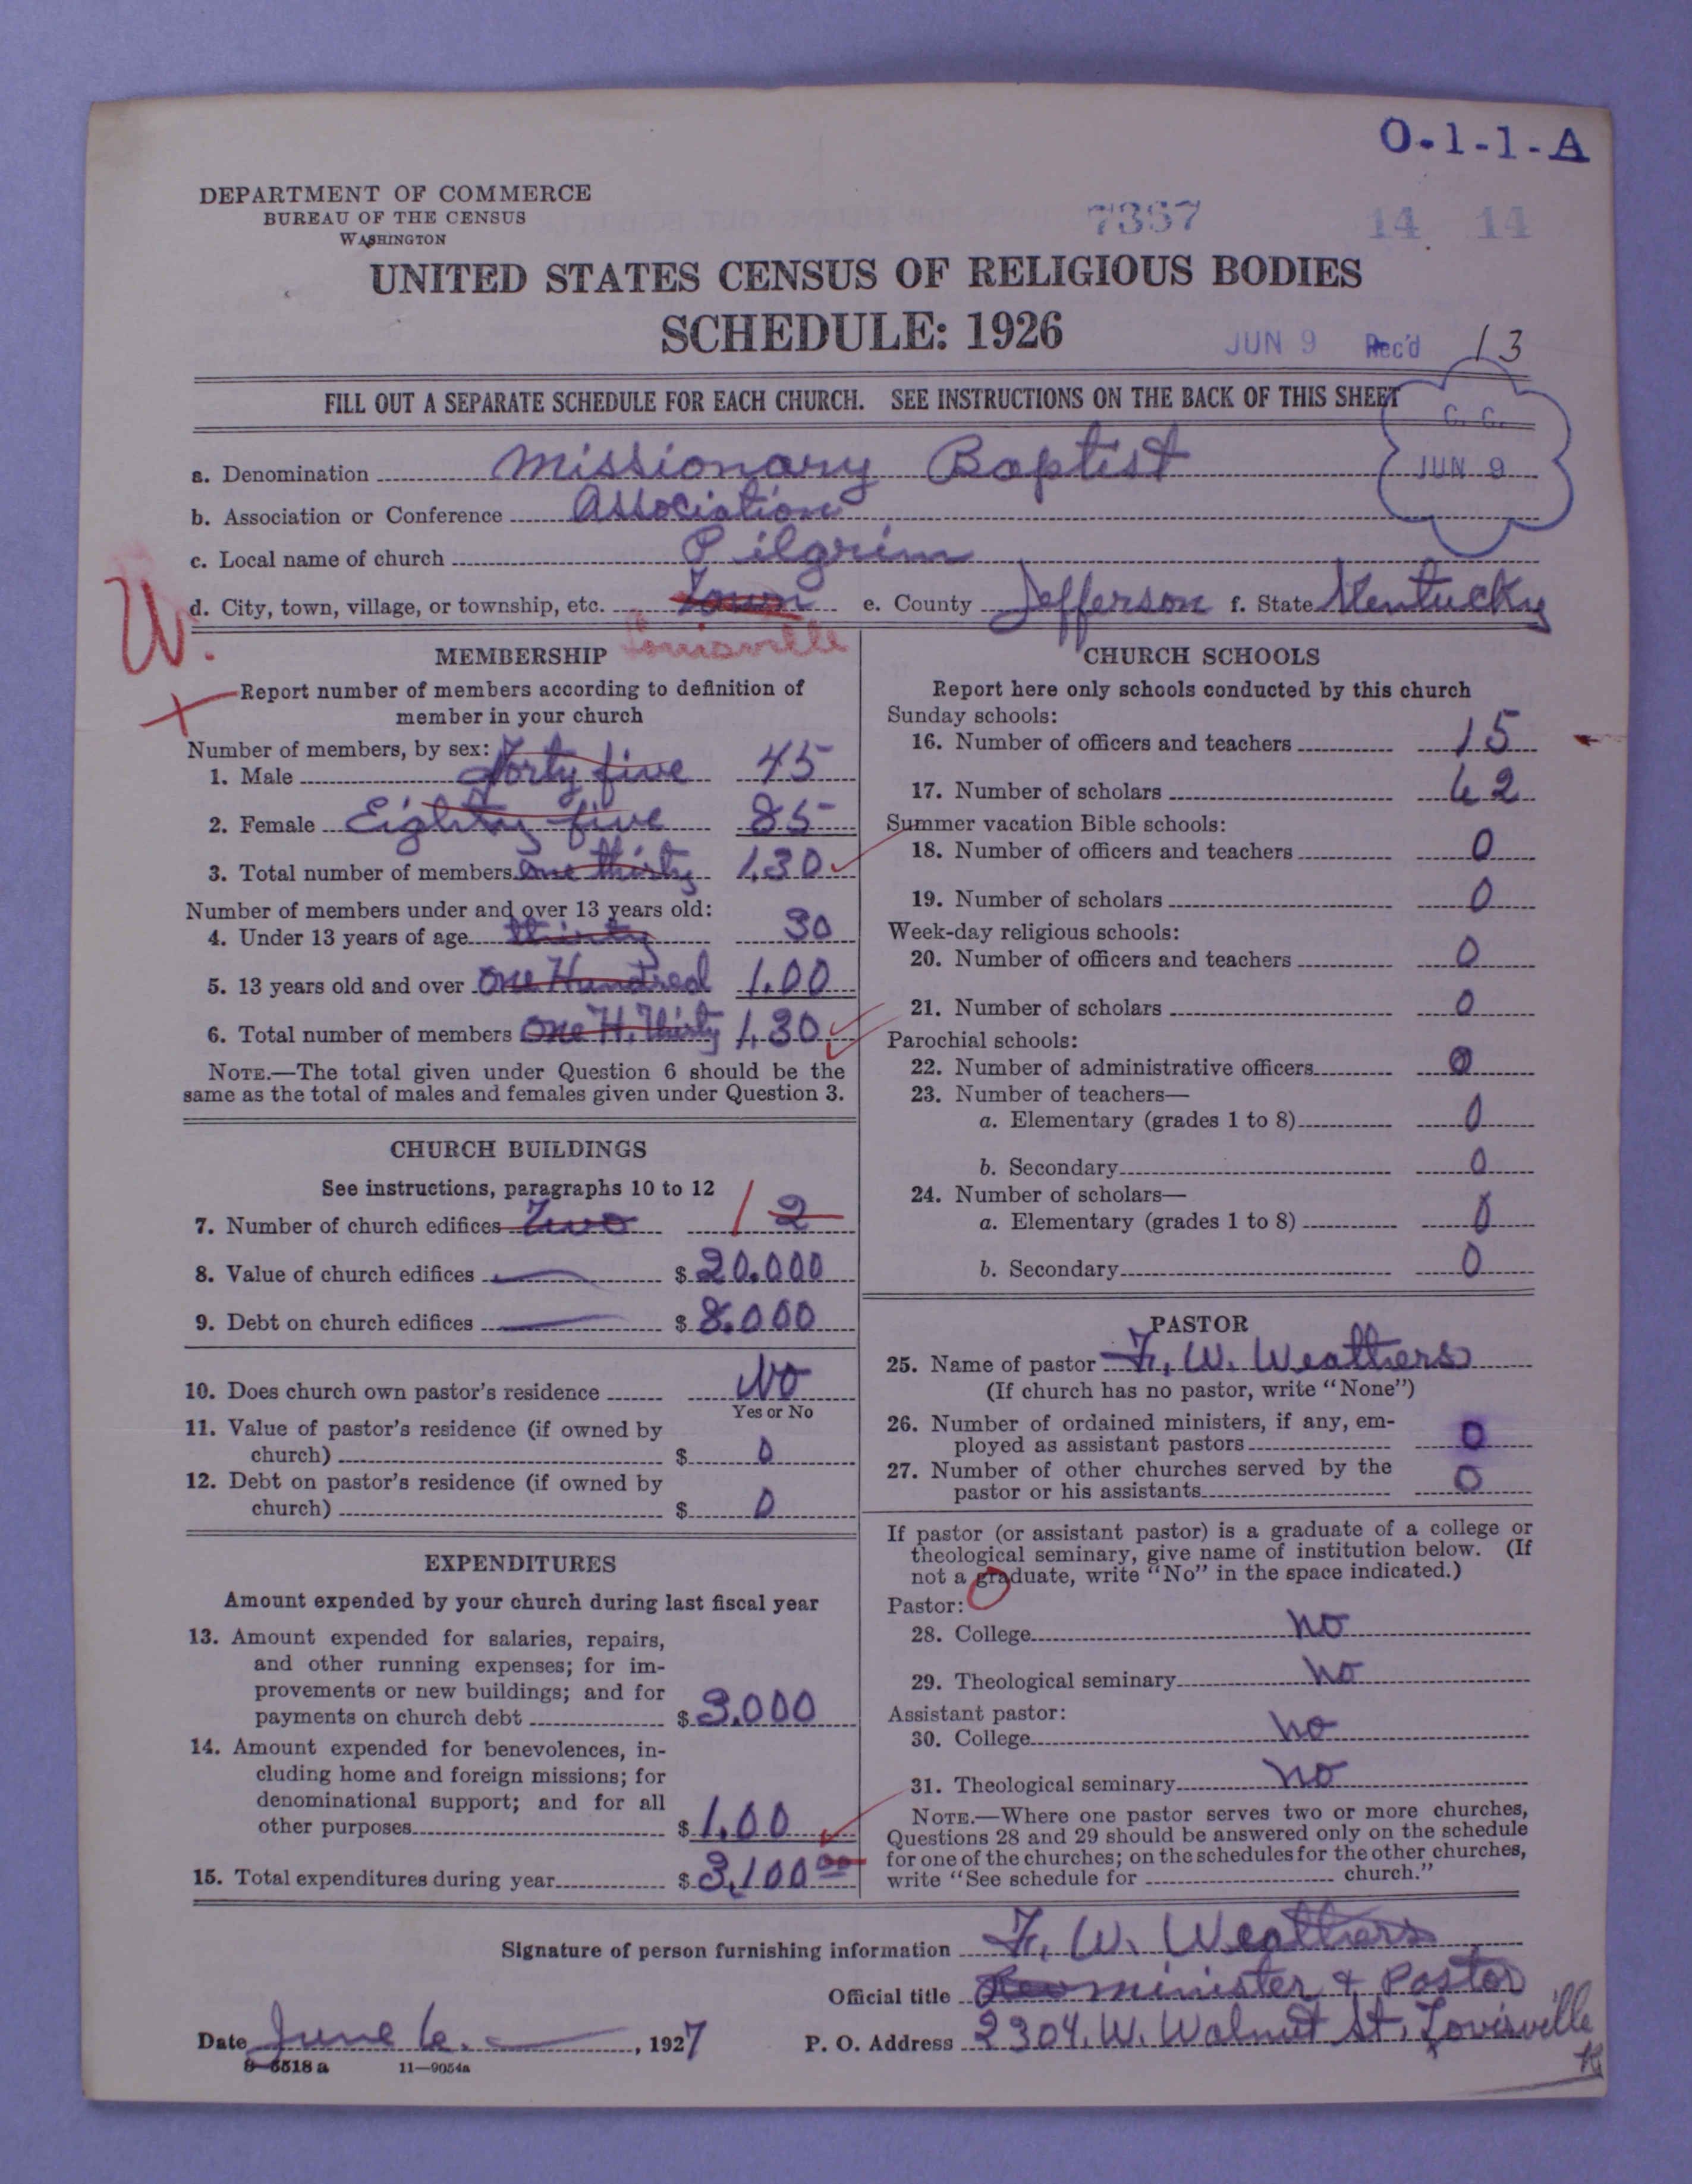 O-1-1-A
DEPARTMENT OF COMMERCE
BUREAU OF THE CENSUS
WASHINGTON
7367 14 14
UNITED STATES CENSUS OF RELIGIOUS BODIES
SCHEDULE: 1926
JUN 9 Rec'd 13
FILL OUT A SEPARATE SCHEDULE FOR EACH CHURCH. SEE INSTRUCTIONS ON THE BACK OF THIS SHEET
C. C.
JUN 9
a. Denomination Missionary Baptist
b. Association or Conference Association
c. Local name of church Pilgrim
d. City, town, village, or township, etc. Town e. County Jefferson f. State Kentucky
Louisville
W.
MEMBERSHIP
Report number of members according to definition of
member in your church
Number of members, by sex:
1. Male Forty five 45
2. Female Eighty five 85
3. Total number of members one thirty 1.30
Number of members under and over 13 years old:
4. Under 13 years of age thirty 30
5. 13 years old and over one Hundred 1.00
6. Total number of members one H. Thirty 1.30
NOTE.—The total given under Question 6 should be the
same as the total of males and females given under Question 3.
CHURCH BUILDINGS
See instructions, paragraphs 10 to 12
7. Number of church edifices Two 1 2
8. Value of church edifices $ 20.000
9. Debt on church edifices $ 8.000
10. Does church own pastor's residence No
Yes or No
11. Value of pastor's residence (if owned by
church) $ 0
12. Debt on pastor's residence (if owned by
church) $ 0
EXPENDITURES
Amount expended by your church during last fiscal year
13. Amount expended for salaries, repairs,
and other running expenses; for im-
provements or new buildings; and for
payments on church debt $ 3.000
14. Amount expended for benevolences, in-
cluding home and foreign missions; for
denominational support; and for all
other purposes $ 1.00
15. Total expenditures during year $ 3,100 00
CHURCH SCHOOLS
Report here only schools conducted by this church
Sunday schools:
16. Number of officers and teachers 15
17. Number of scholars 62
Summer vacation Bible schools:
18. Number of officers and teachers 0
19. Number of scholars 0
Week-day religious schools:
20. Number of officers and teachers 0
21. Number of scholars 0
Parochial schools:
22. Number of administrative officers 0
23. Number of teachers—
a. Elementary (grades 1 to 8) 0
b. Secondary 0
24. Number of scholars—
a. Elementary (grades 1 to 8) 0
b. Secondary 0
PASTOR
25. Name of pastor F. W. Weathers
(If church has no pastor, write "None")
26. Number of ordained ministers, if any, em-
ployed as assistant pastors 0
27. Number of other churches served by the
pastor or his assistants 0
If pastor (or assistant pastor) is a graduate of a college or
theological seminary, give name of institution below. (If
not a graduate, write "No" in the space indicated.)
Pastor:
28. College no
29. Theological seminary no
Assistant pastor:
30. College no
31. Theological seminary no
NOTE.—Where one pastor serves two or more churches,
Questions 28 and 29 should be answered only on the schedule
for one of the churches; on the schedules for the other churches,
write "See schedule for church."
Signature of person furnishing information F. W. Weathers
Official title minister & Pastor
Date June 6. , 1927 P. O. Address 2304. W. Walnut St. Louisville
K
8-5518 a 11—9054a